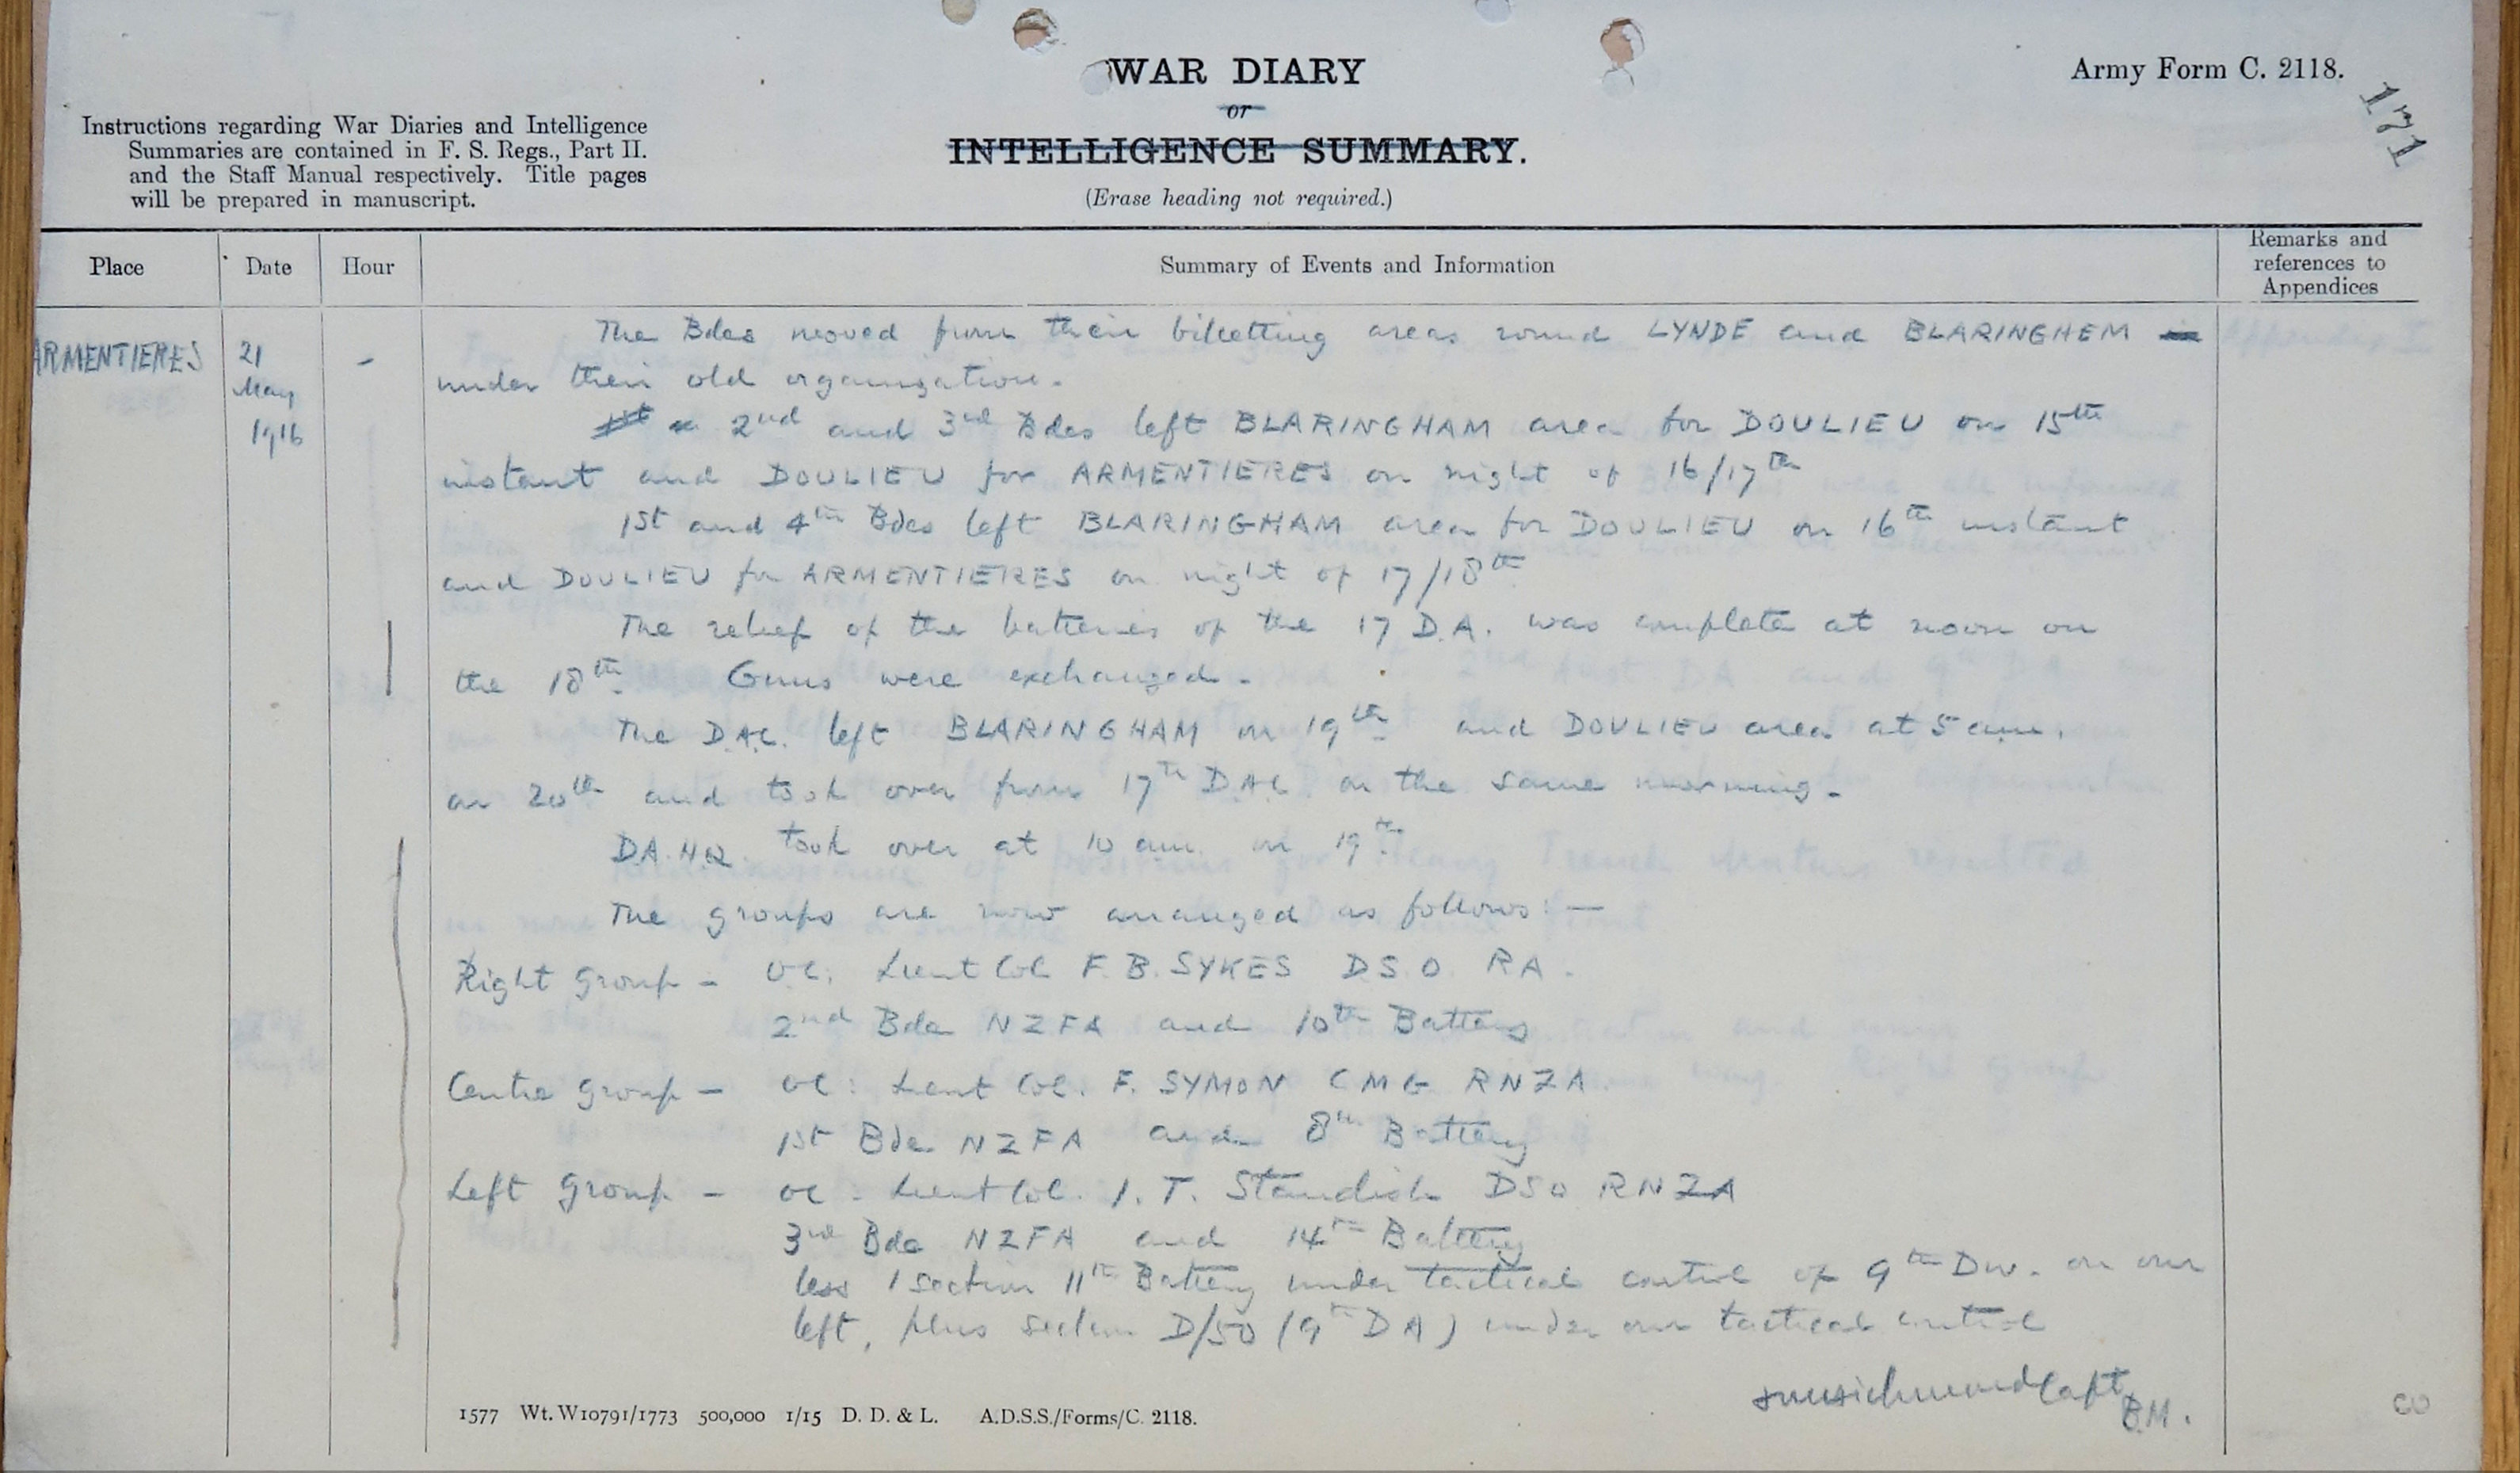 WAR DIARY
or
INTELLIGENCE SUMMARY.
(Erase heading not required.)
Army Form C. 2118.
171
Instructions regarding War Diaries and Intelligence
Summaries are contained in F. S. Regs., Part II.
and the Staff Manual respectively. Title pages
will be prepared in manuscript.
Place Date Hour Summary of Events and Information Remarks and
references to
Appendices
ARMENTIERES 21 May 1916 -
The Bdes moved from their billetting areas round LYNDE and BLARINGHEM
under their old organization.
1st 2nd and 3rd Bdes left BLARINGHAM area for DOULIEU on 15th
instant and DOULIEU for ARMENTIERES on night of 16/17th
1st and 4th Bdes left BLARINGHAM area for DOULIEU on 16th instant
and DOULIEU for ARMENTIERES on night of 17/18th
The relief of the batteries of the 17 D.A. was complete at noon on
the 18th. Guns were exchanged.
The D.A.C. left BLARINGHAM on 19th and DOULIEU area at 5 am.
on 20th and took over from 17th D.A.C. on the same morning.
D.A.H.Q. took over at 10 am. on 19th.
The groups are now arranged as follows:—
Right Group - O.C. Lieut Col F. B. SYKES DSO RA.
2nd Bde NZFA and 10th Battery
Centre Group - OC: Lieut Col. F. SYMON CMG RNZA
1st Bde NZFA and 8th Battery
Left Group - OC: Lieut Col. I. T. Standish DSO RNZA
3rd Bde NZFA and 14th Battery
less 1 section 11th Battery under tactical control of 9th Div. on our
left, plus section D/50 (9th DA) under our tactical control
Capt
B.M.
1577 Wt. W10791/1773 500,000 1/15 D. D. & L. A.D.S.S./Forms/C. 2118.